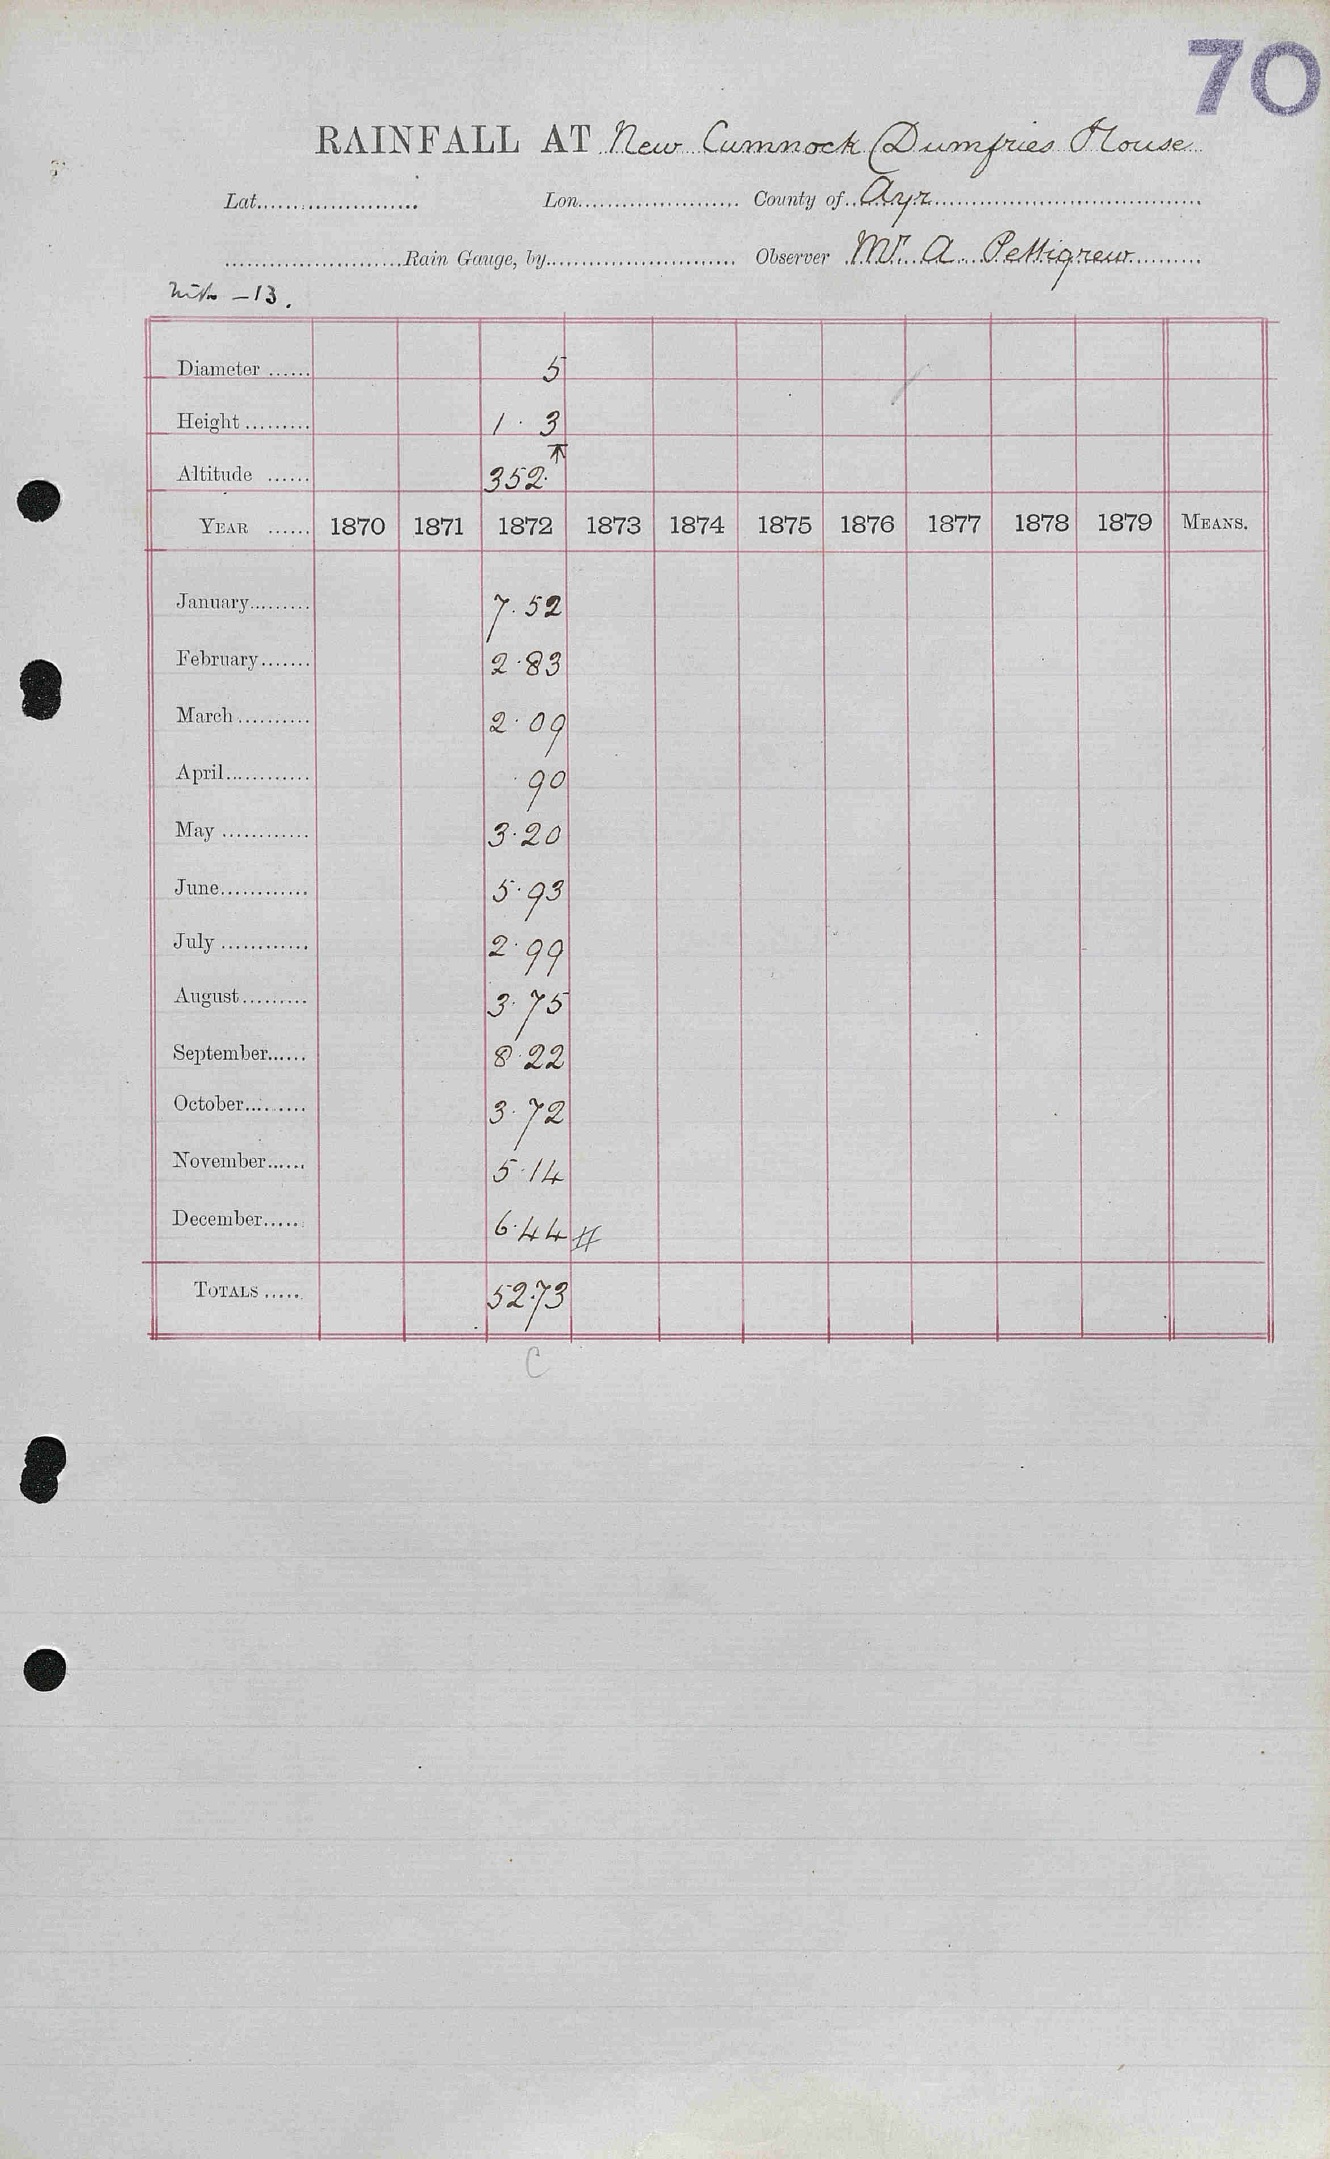 70
RAINFALL AT New Cumnock (Dumfries House
Lat..................... Lon..................... County of Ayr
Rain Gauge, by..................... Observer Mr. A. Pettigrew
— 13.
Diameter ...... 5
Height ......... 1 · 3
Altitude ...... 352·
YEAR ...... 1870 1871 1872 1873 1874 1875 1876 1877 1878 1879 MEANS.
January......... 7·52
February....... 2·83
March .......... 2·09
April............ ·90
May ............ 3·20
June............ 5·93
July ............ 2·99
August......... 3·75
September...... 8·22
October......... 3·72
November...... 5·14
December..... 6·44 #
TOTALS ..... 52·73
C